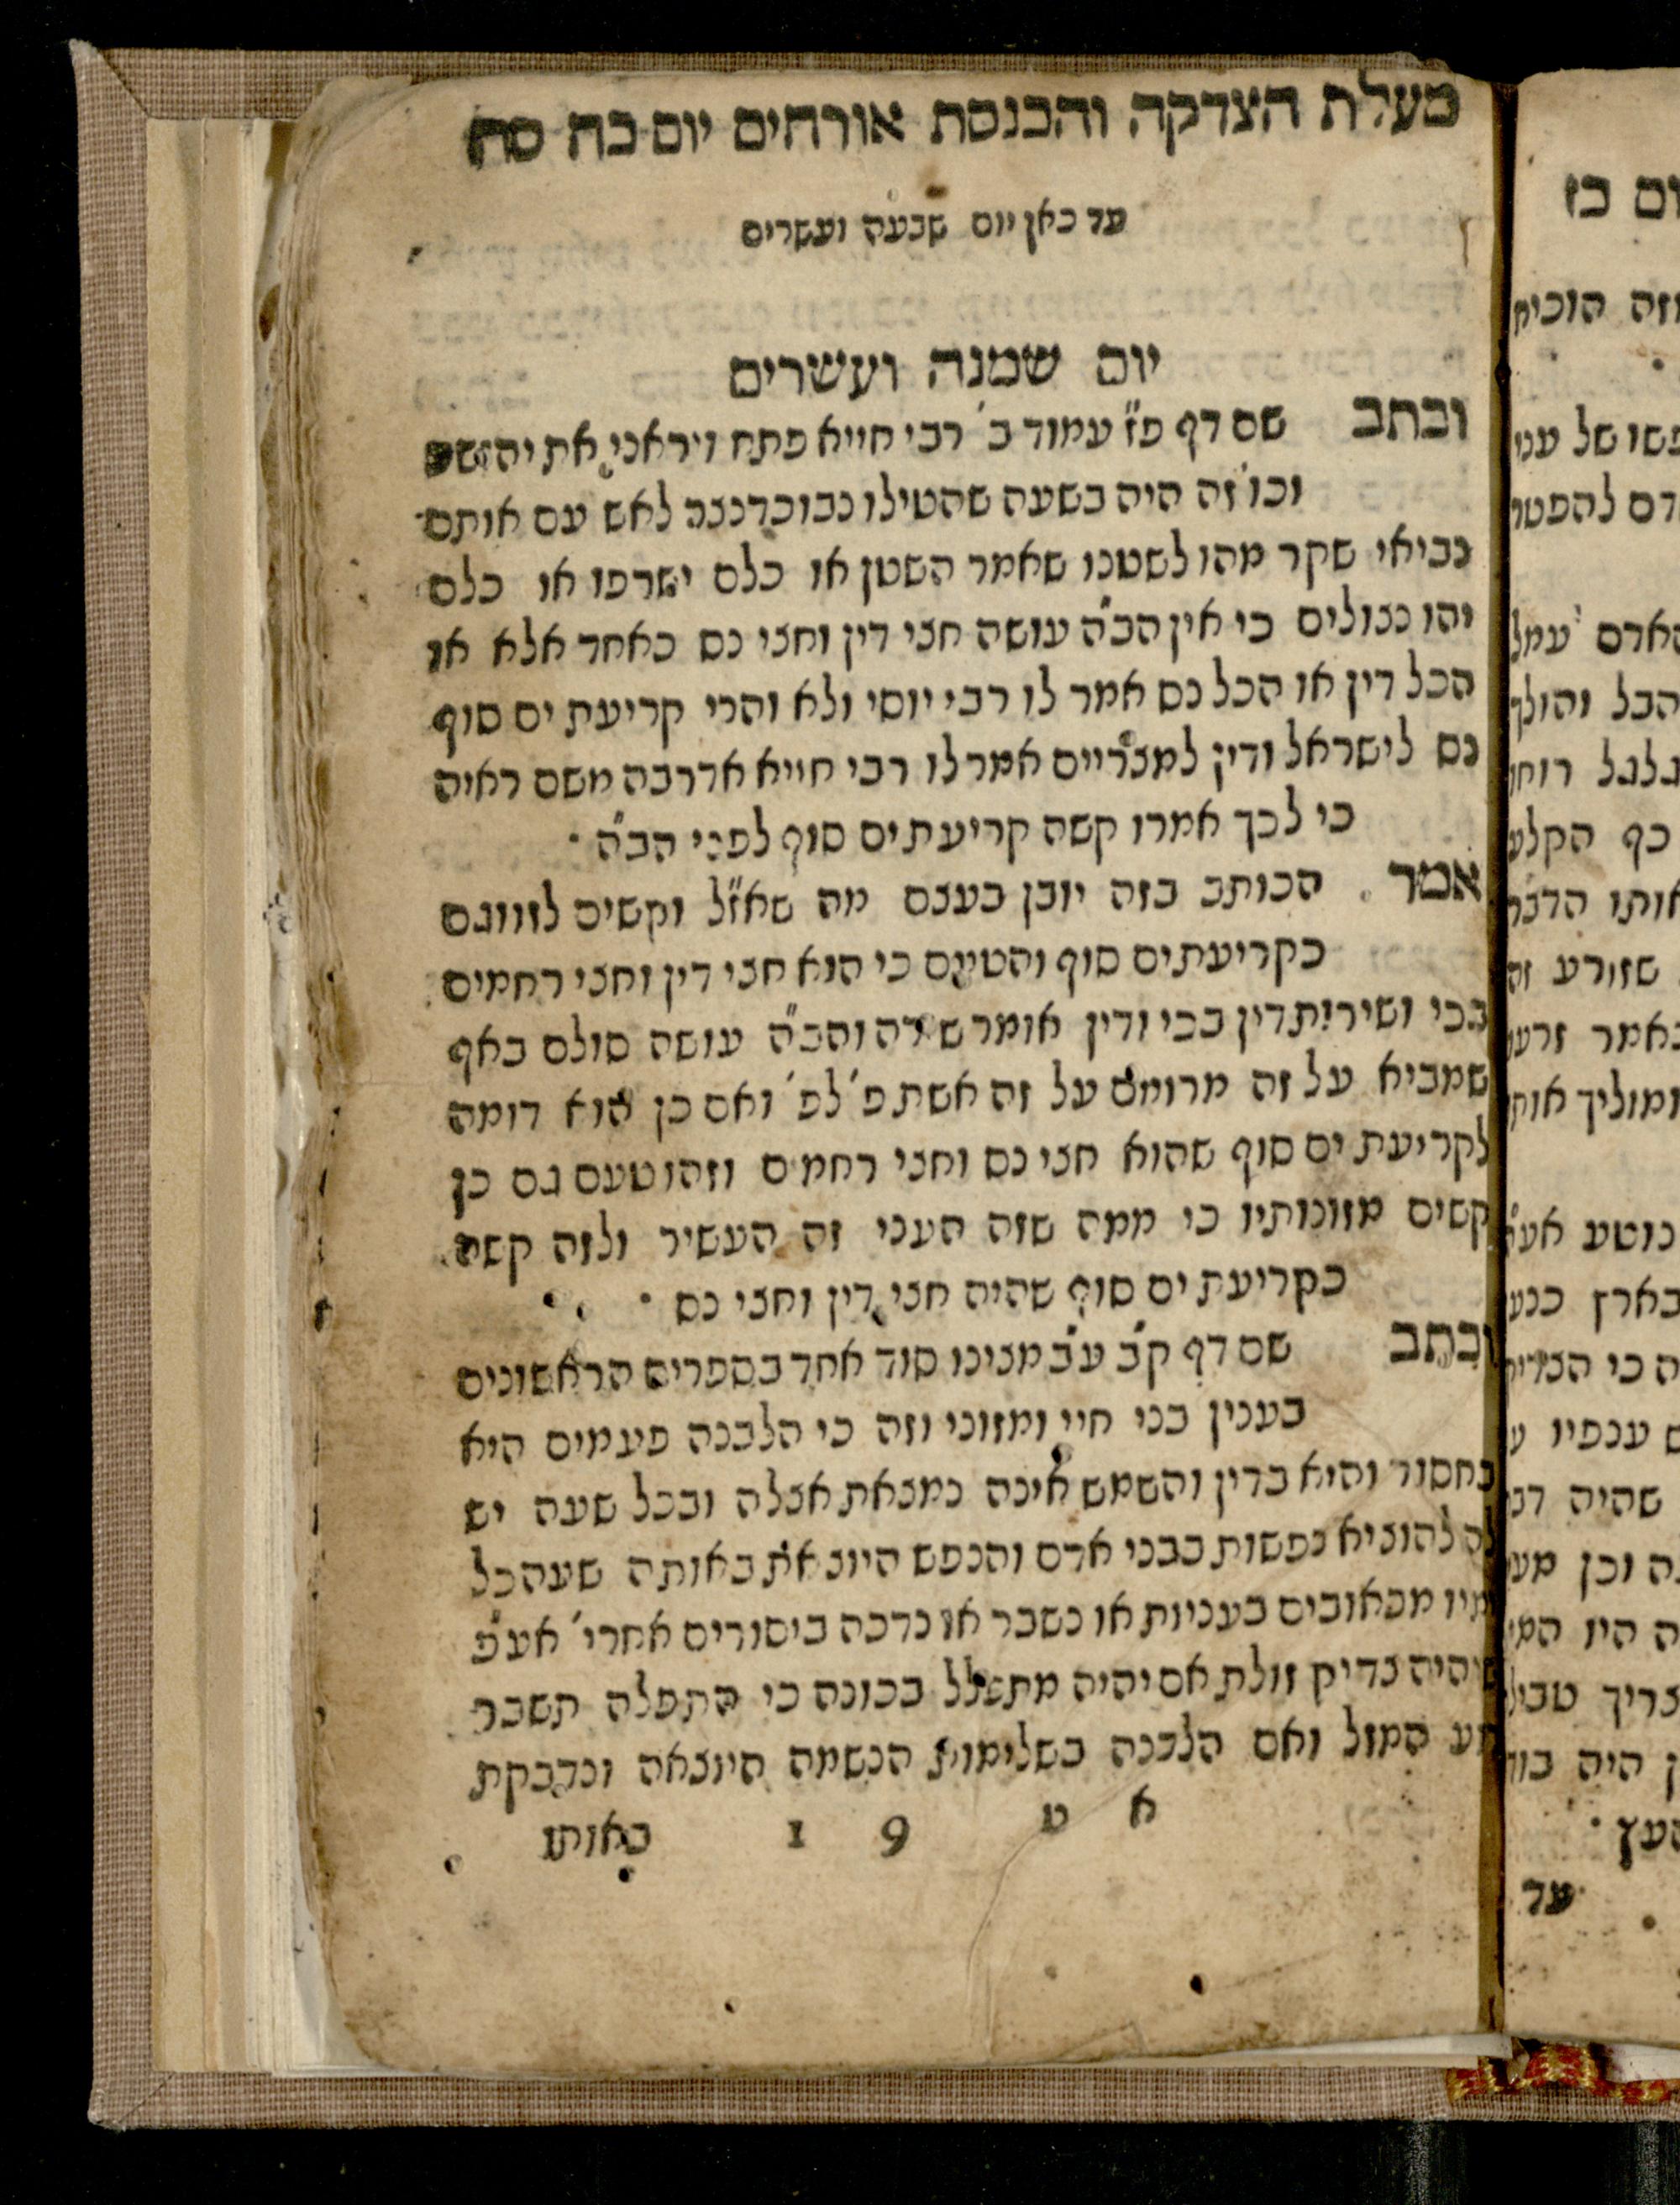 מעלת הצדקה והכנסת אורחים יום כח סח
עד כאן יום שבעה ועשרים
יום שמנה ועשרים
וכתב שם דף פ"ז עמוד ב' רבי חייא פתח ויראני את יהושע
וכו' זה היה בשעה שהטילו נבוכדנצר לאש עם אותם
נביאי שקר מהו לשטנו שאמר השטן או כלם ישרפו או כלם
יהו נצולים כי אין הב"ה עושה חצי דין וחצי נס כאחד אלא או
הכל דין או הכל נס אמר לו רבי יוסי ולא והרי קריעת ים סוף
נס לישראל ודין למצריים אמר לו רבי חייא אדרבה משם ראיה
כי לכך אמרו קשה קריעת ים סוף לפני הב"ה
אמר הכותב בזה יובן בעצם מה שאז"ל וקשים לזווגם
כקריעת ים סוף והטעם כי הוא חצי דין וחצי רחמים
בכי ושירות דין בכי ודין אומר שדה והב"ה עושה סולם באף
שמביא על זה מרומם על זה אשת פ' לפ' ואם כן הוא דומה
לקריעת ים סוף שהוא חצי נס וחצי רחמים וזהו טעם גם כן
קשים מזונותיו כי ממה שזה העני זה העשיר ולזה קשה
כקריעת ים סוף שהיה חצי דין וחצי נס
וכתב שם דף ק"ב ע"ב מצינו סוד אחד בספרים הראשונים
בענין בני חיי ומזוני וזה כי הלבנה פעמים היא
בחסור והיא בדין והשמש אינה נמצאת אצלה ובכל שעה יש
לה להוציא נפשות בבני אדם והנפש היוצאת באותה שעה כל
ימיו מכאובים בעניות או נשבר או נדכה ביסורים אחרי' אע"פ
שיהיה צדיק זולת אם יהיה מתפלל בכונה כי התפלה תשבר
רע המזל ואם הלבנה בשלימות הנשמה היוצאה ונדבקת
א ט 9 1 באותו
ום כז
וזה הוכיח
פשו של עני
דם להפטר
האדם עמל
הבל והולך
גלגל רוחו
כף הקלע
אותו הדבר
שזורע זה
ומוליך אותו
נוטע
בארץ כנע
ה כי
ענפיו
שהיה
ה וכן
ה היו המי
צריך טביל
ן היה
העץ
עד